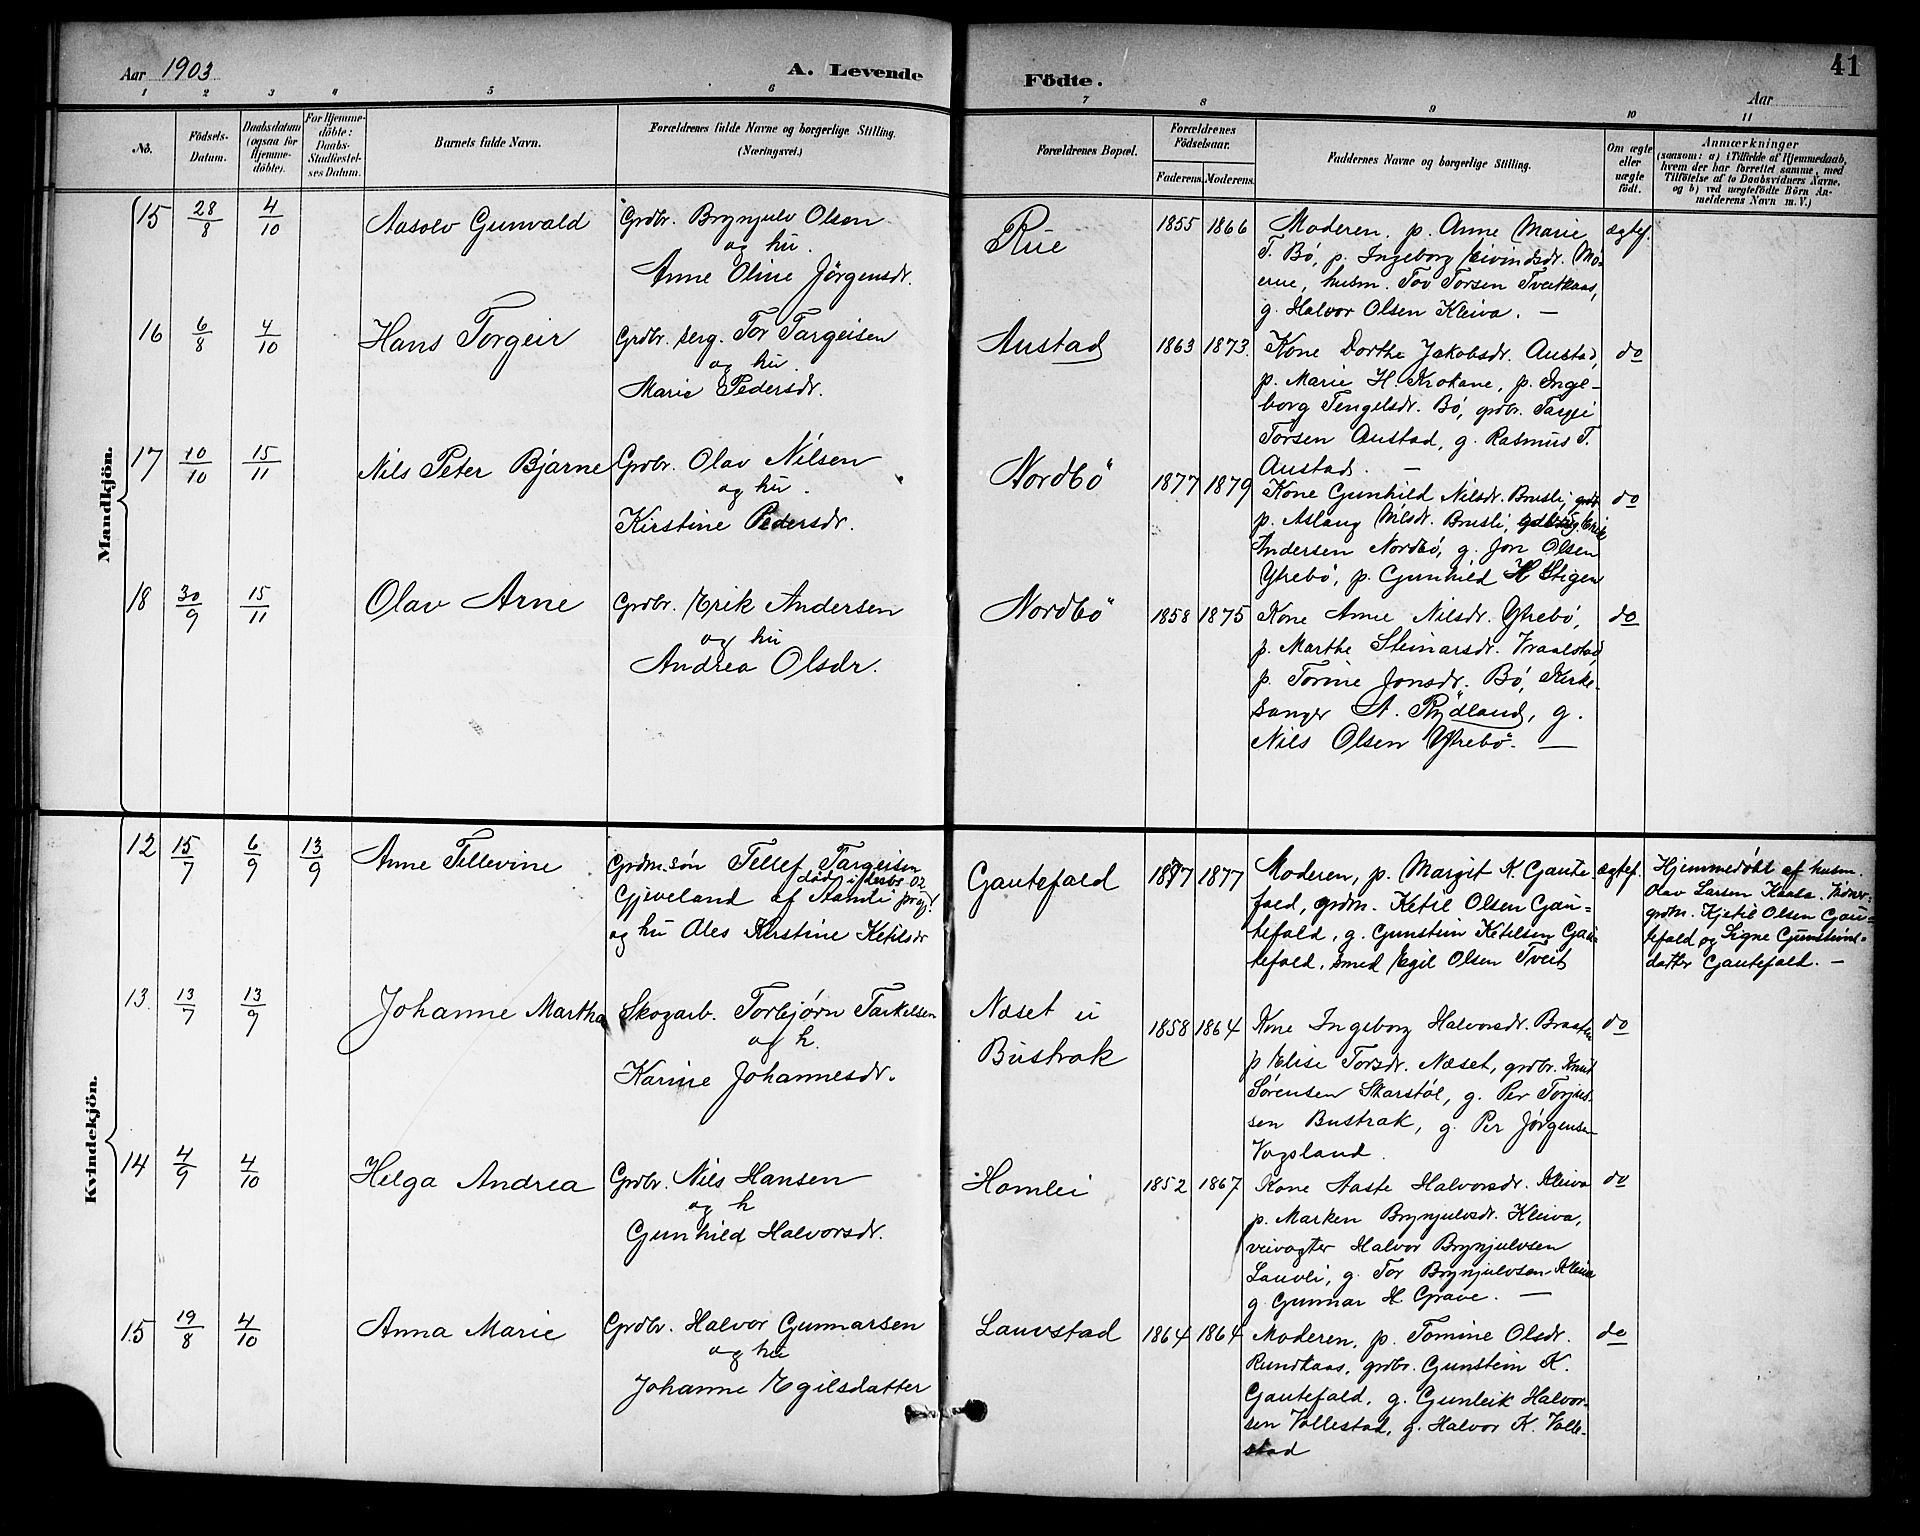 Aar 1903
A. Levende
Födte.
Aar
41
1 2 3 4 5 6 7 8 9 10 11
No.
Födsels-
Datum.
Daabsdatum
(ogsaa for
Hjemme-
döbte).
For Hjemme-
döbte:
Daabs-
Stadfæstel-
ses Datum.
Barnets fulde Navn.
Forældrenes fulde Navne og borgerlige Stilling.
(Næringsvei.)
Forældrenes Bopæl.
Forældrenes
Födselsaar.
Faderens. Moderens.
Faddernes Navne og borgerlige Stilling.
Om ægte
eller
uægte
födt.
Anmærkninger
(saasom: a) i Tilfælde af Hjemmedaab,
hvem der har forrettet samme, med
Tilföielse af to Daabsvidners Navne,
og b) ved uegtefödte Börn An-
melderens Navn m. V.)
Mandkjön.
15 28/8 4/10 Aasolv Gunvald
Grdbr. Brynjulv Olsen
og hu.
Anne Oline Jörgensdr.
Rue
1855 1866
Moderen, p. Anne Marie
T. Bø, p. Ingeborg Eivindsdr. Mo-
ene, husm. Tov Torsen Tveitkaas,
g. Halvor Olsen Kleiva. —
ægtef.
16 6/8 4/10 Hans Torgeir
Grdbr. serg. Tor Targeisen
og hu.
Marie Pedersdr.
Austad
1863 1873.
Kone Dorthe Jakobsdr. Austad,
p. Marie H. Krokane, p. Inge-
borg Tengelsdr. Bø, grdbr. Targei
Torsen Austad, g. Rasmus T.
Austad. —
do
17 10/10 15/11 Nils Peter Bjarne
Grdbr. Olav Nilsen
og hu.
Kirstine Pedersdr.
Nordbö
1877 1879
Kone Gunhild Nilsdr. Brusli,
p. Aslaug Nilsdr. Brusli, Erik
Andersen Nordbø, g. Jon Olsen
Ytrebø, p. Gunhild H Stigen
do
18 30/9 15/11 Olav Arne
Grdbr. Erik Andersen
og hu
Andrea Olsdr.
Nordbö
1858 1875
Kone Anne Nilsdr. Ytrebø,
p. Marthe Steinarsdr. Vraalstad
p. Torine Jonsdr. Bø, Kirke-
sanger A. Rydland, g.
Nils Olsen Ytrebø. —
do
Kvindekjön.
12 15/7 6/9 13/9 Anne Tellevine
Grdm.søn Tellef Targeisen
død i desbr 02
Gjiveland af Aamli prgj.
og hu Ales Kirstine Ketilsdr
Gautefald
1877 1877
Moderen, p. Margit K. Gaute-
fald, grdm. Ketil Olsen Gau-
tefald, g. Gunstein Ketilsen Gau-
tefald, smed Egil Olsen Tveit
ægtef.
Hjemmedøbt af husm.
Olav Larsen Kaasa. Vidner
grdm. Kjetil Olsen Gau-
tefald og Signe Gunsteins-
datter Gautefald. —
13. 13/7 13/9 Johanne Martha
Skogarb. Torbjørn Tarkelsen
og h.
Karine Johannesdr.
Næset u
Bustrak
1858 1864
Kone Ingeborg Halvorsdr. Braaten
p Elise Torsdr. Næset, grdbr. Knud
Sørensen Skarstøl, g. Per Torjus-
sen Bustrak, g. Per Jørgensen
Vogsland.
do
14 4/9 4/10 Helga Andrea
Grdbr. Nils Hansen
og h
Gunhild Halvorsdr.
Homlei
1852 1867
Kone Aaste Halvorsdr. Kleiva
p. Marken Brynjulvsdr. Kleiva,
veivogter Halvor Brynjulvsen
Lauvli, g. Tor Brynjulvsen Kleiva
g. Gunnar H. Grave. —
do
15 19/8 4/10 Anna Marie
Grdbr. Halvor Gunnarsen
og hu
Johanne Egilsdatter
Lauvstad
1864 1864
Moderen, p. Tomine Olsdr.
Rundkaas, grdbr. Gunstein K.
Gautefald, g. Gunleik Halvor-
sen Vollestad, g. Halvor K. Volle-
stad
do